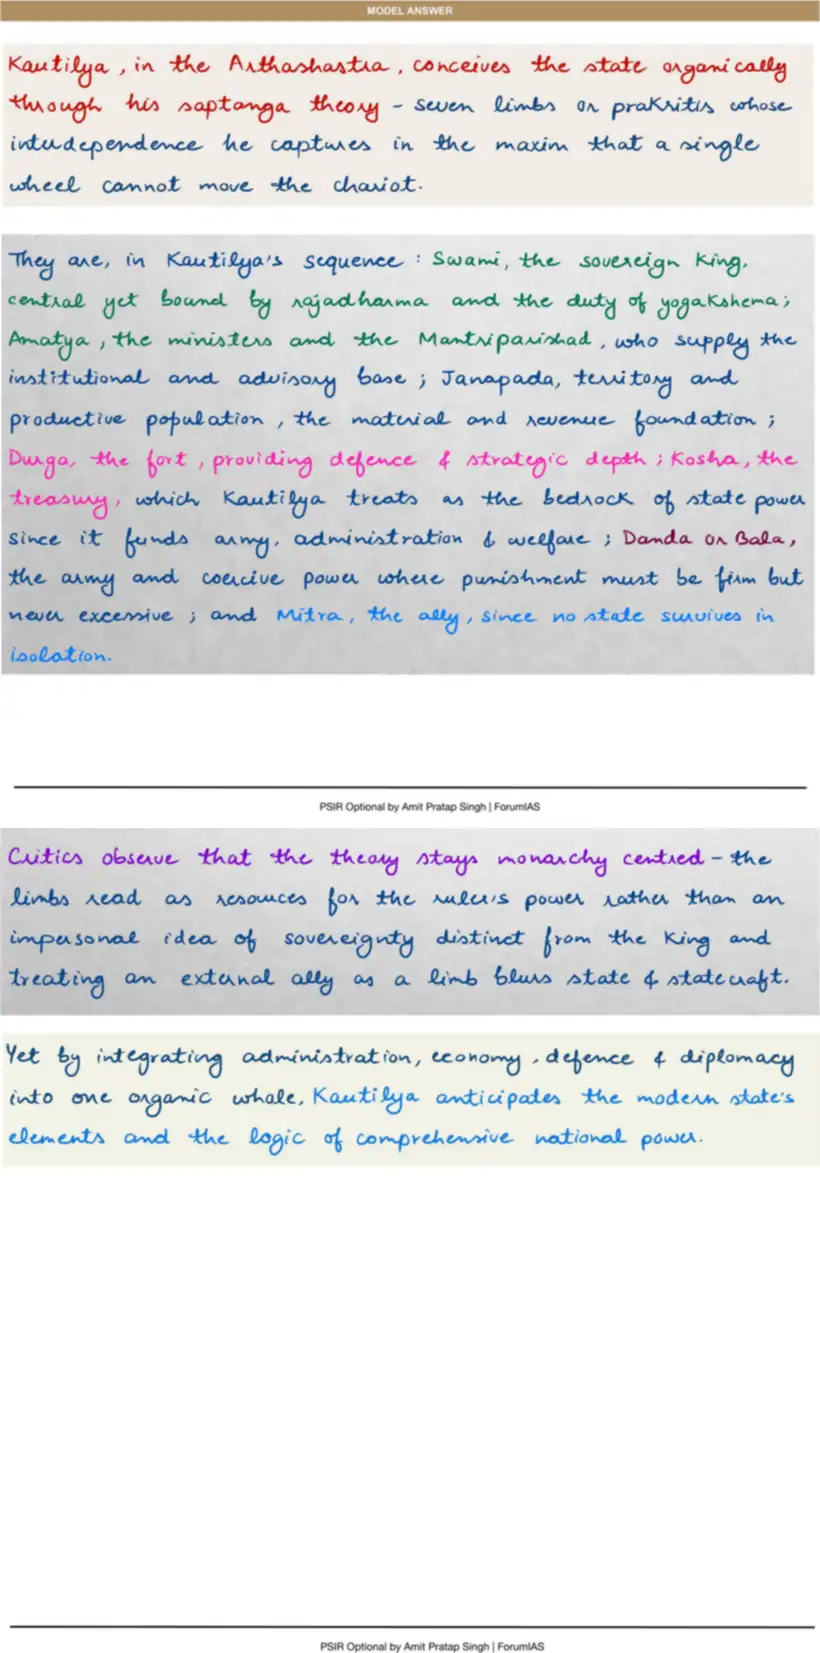 MODEL ANSWER
Kautilya, in the Arthashastra, conceives the state organically
through his saptanga theory - seven limbs or prakritis whose
interdependence he captures in the maxim that a single
wheel cannot move the chariot.
They are, in Kautilya's sequence : Swami, the sovereign King,
central yet bound by rajadharma and the duty of yogakshema;
Amatya, the ministers and the Mantriparishad, who supply the
institutional and advisory base ; Janapada, territory and
productive population, the material and revenue foundation ;
Durga, the fort, providing defence & strategic depth ; Kosha, the
treasury, which Kautilya treats as the bedrock of state power
since it funds army, administration & welfare ; Danda or Bala,
the army and coercive power where punishment must be firm but
never excessive ; and Mitra, the ally, since no state survives in
isolation.
PSIR Optional by Amit Pratap Singh | ForumIAS
Critics observe that the theory stays monarchy centred - the
limbs read as resources for the ruler's power rather than an
impersonal idea of sovereignty distinct from the King and
treating an external ally as a limb blurs state & statecraft.
Yet by integrating administration, economy, defence & diplomacy
into one organic whole, Kautilya anticipates the modern state's
elements and the logic of comprehensive national power.
PSIR Optional by Amit Pratap Singh | ForumIAS